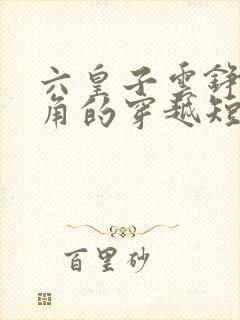 六皇子云铮
角的穿越短
百里砂